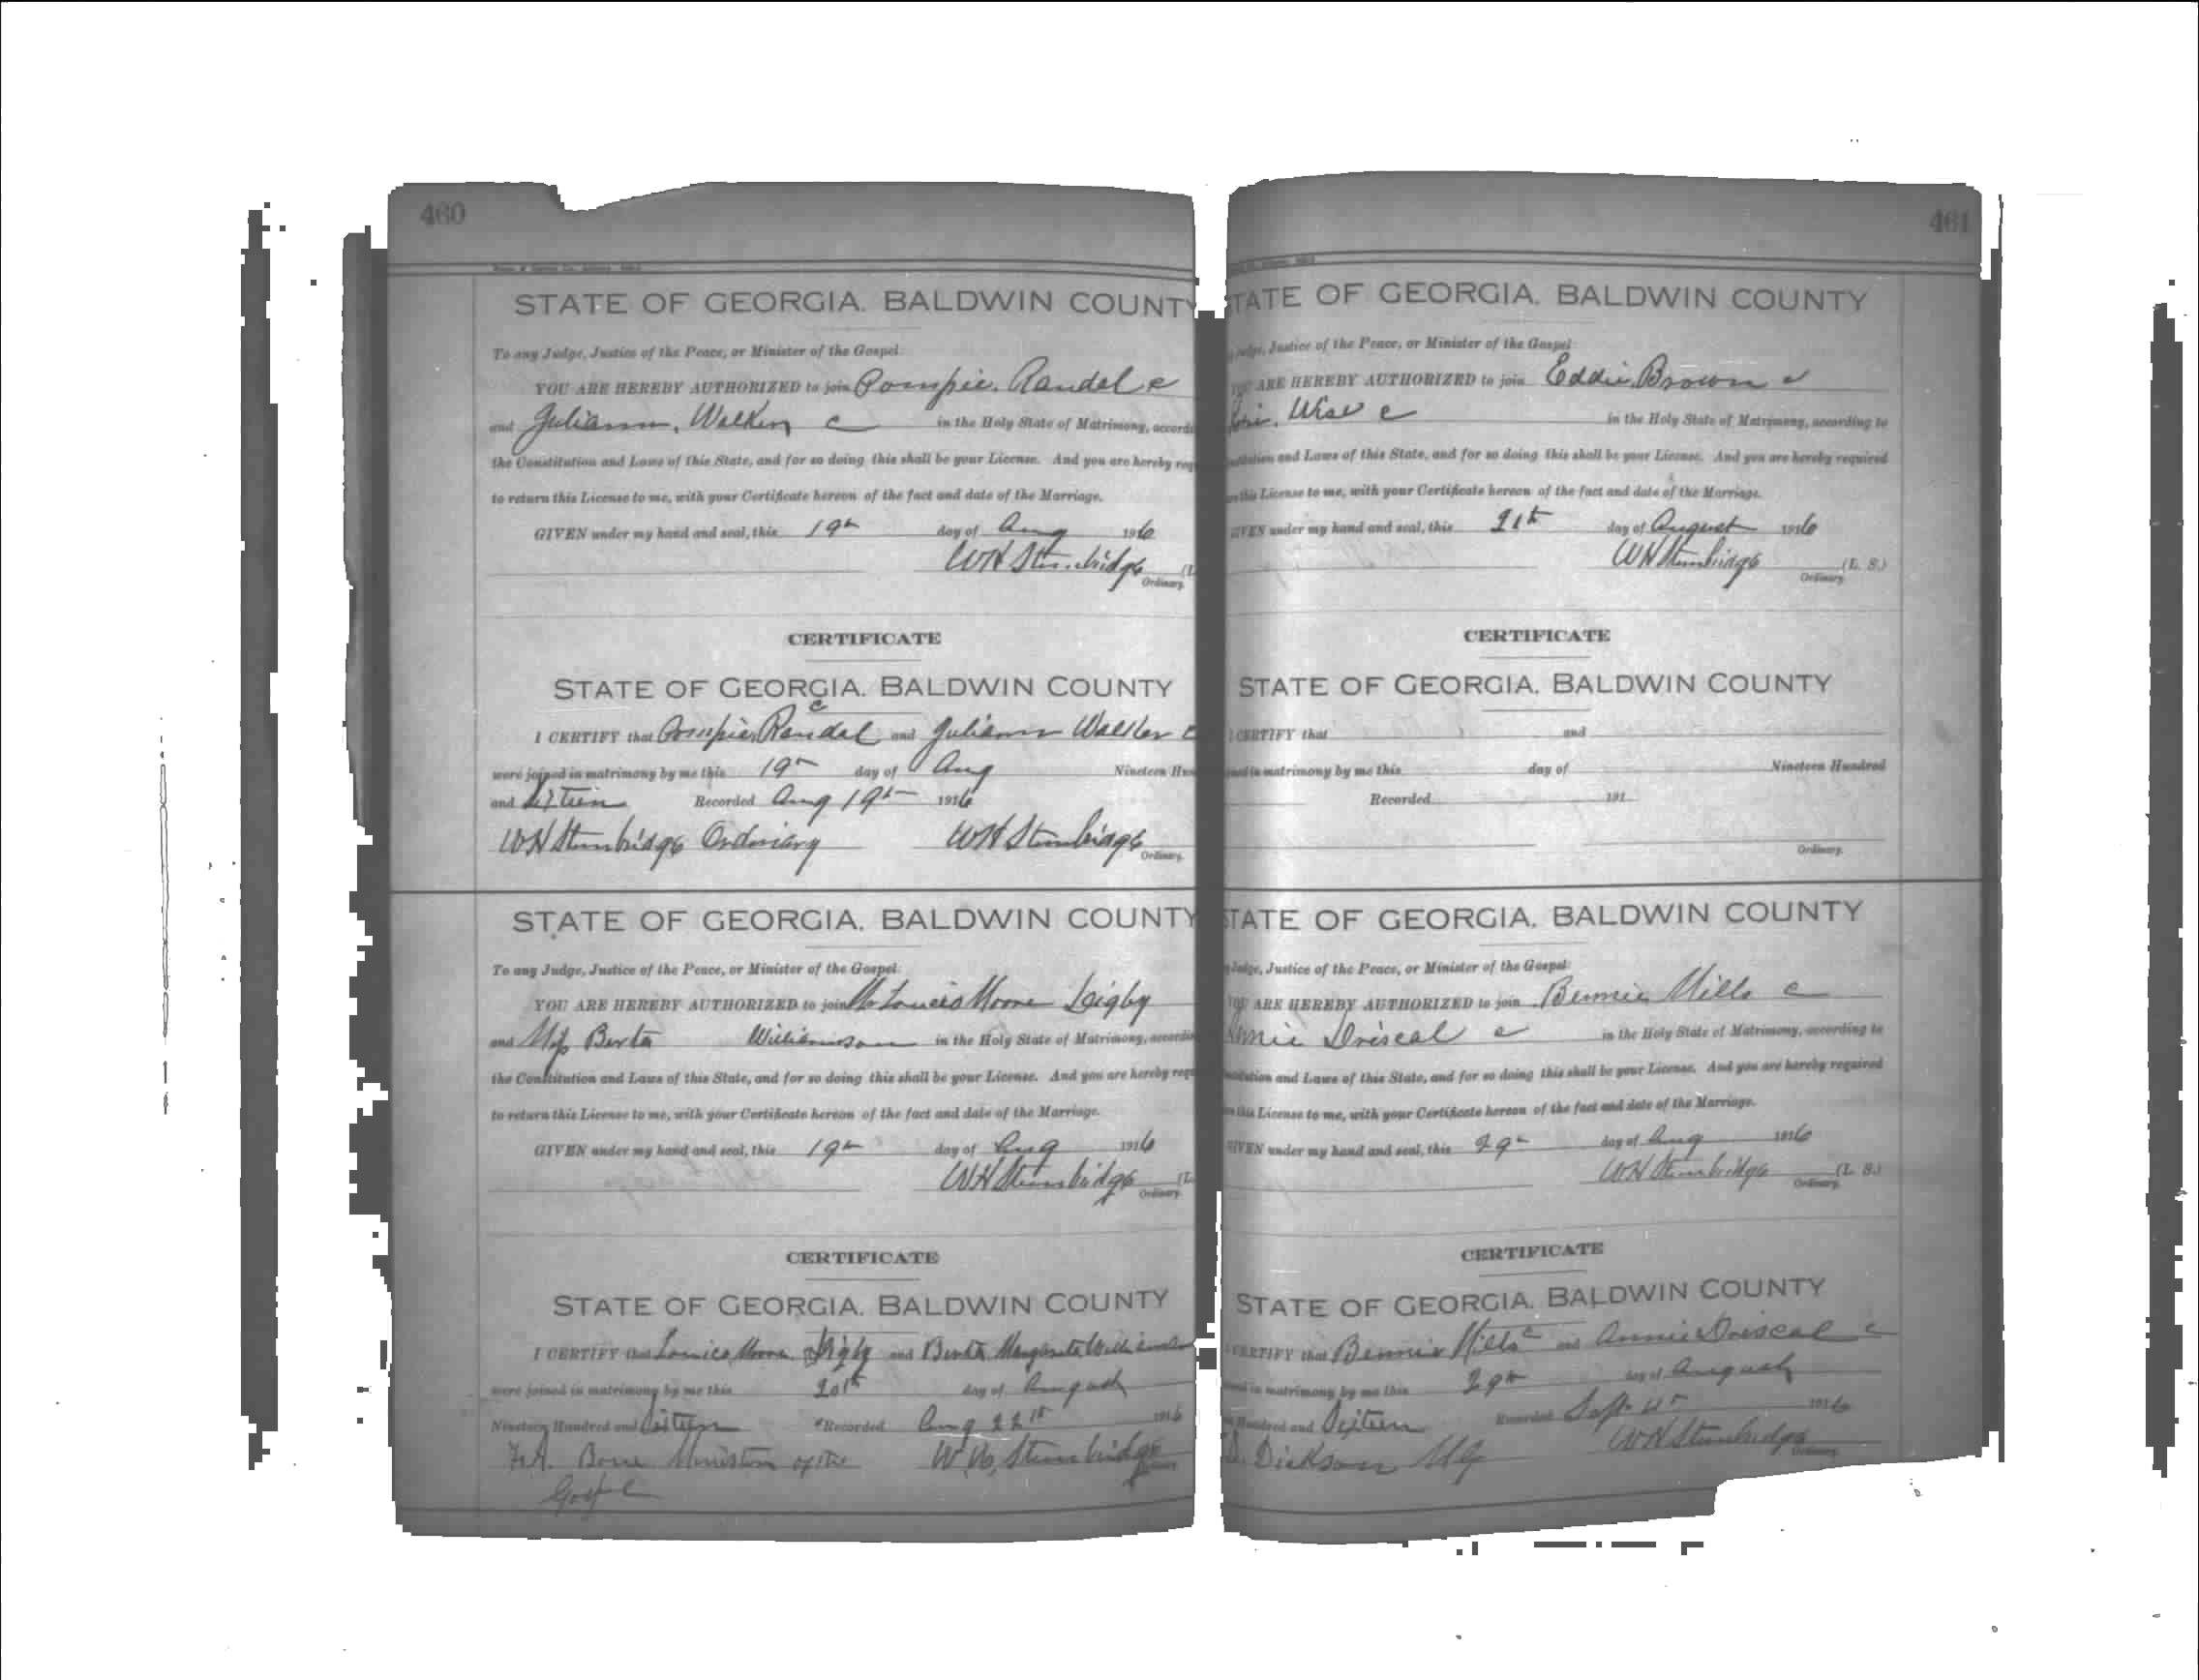 460
STATE OF GEORGIA. BALDWIN COUNTY
To any Judge, Justice of the Peace, or Minister of the Gospel:
YOU ARE HEREBY AUTHORIZED to join Pompie. Randel c
and Juliann. Walker c in the Holy State of Matrimony, accordi
the Constitution and Laws of this State, and for so doing this shall be your License. And you are hereby req
to return this License to me, with your Certificate hereon of the fact and date of the Marriage.
GIVEN under my hand and seal, this 19th day of Aug 1916
WH Stembridge (L
Ordinary.
CERTIFICATE
STATE OF GEORGIA. BALDWIN COUNTY
I CERTIFY that Pompie Randel c and Juliann Walker c
were joined in matrimony by me this 19th day of Aug Nineteen Hun
and Sixteen Recorded Aug 19th 1916
WH Stembridge Ordinary WH Stembridge
Ordinary.
STATE OF GEORGIA. BALDWIN COUNTY
To any Judge, Justice of the Peace, or Minister of the Gospel:
YOU ARE HEREBY AUTHORIZED to join Moore Digby
and Miss Berta Williamson in the Holy State of Matrimony, accordin
the Constitution and Laws of this State, and for so doing this shall be your License. And you are hereby requ
to return this License to me, with your Certificate hereon of the fact and date of the Marriage.
GIVEN under my hand and seal, this 19th day of Aug 1916
WH Stembridge (L
Ordinary.
CERTIFICATE
STATE OF GEORGIA. BALDWIN COUNTY
I CERTIFY that Moore Digby and Berta Margarite Williamson
were joined in matrimony by me this 20th day of August
Nineteen Hundred and Sixteen Recorded Aug 22nd 1916
Bone Minister of the W. H. Stembridge
Gospel
461
TATE OF GEORGIA. BALDWIN COUNTY
Judge, Justice of the Peace, or Minister of the Gospel:
YOU ARE HEREBY AUTHORIZED to join Eddie Brown c
Wise c in the Holy State of Matrimony, according to
and Laws of this State, and for so doing this shall be your License. And you are hereby required
this License to me, with your Certificate hereon of the fact and date of the Marriage.
GIVEN under my hand and seal, this 21st day of August 1916
WH Stembridge (L. S.)
Ordinary
CERTIFICATE
STATE OF GEORGIA. BALDWIN COUNTY
I CERTIFY that and
in matrimony by me this day of Nineteen Hundred
Recorded 191
Ordinary.
STATE OF GEORGIA. BALDWIN COUNTY
Judge, Justice of the Peace, or Minister of the Gospel:
YOU ARE HEREBY AUTHORIZED to join Bennie Mills c
Annie Driscal c in the Holy State of Matrimony, according to
and Laws of this State, and for so doing this shall be your License. And you are hereby required
this License to me, with your Certificate hereon of the fact and date of the Marriage.
GIVEN under my hand and seal, this 29th day of Aug 1916
WH Stembridge (L. S.)
Ordinary.
CERTIFICATE
STATE OF GEORGIA. BALDWIN COUNTY
CERTIFY that Bennie Mills c and Annie Driscal c
in matrimony by me this 29th day of August
Hundred and Sixteen Recorded Sept 1916
Dickson MG WH Stembridge
Ordinary.